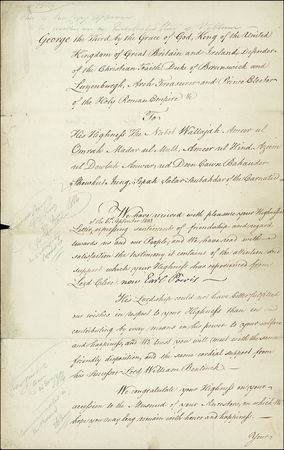 George the Third by the Grace of God, King of the United
Kingdom of Great Britain and Ireland, Defender
of the Christian Faith, Duke of Brunswick and
Luxenburgh, Arch Treasurer and Prince Elector
of the Holy Roman Empire &c
To
His Highness The Nabob Wallajah Ameer ul
Omrah Madar ul Mulk, Ameer ul Hind, Azeem
ul Dowlah Anwar, ud Deen Cawn Bahauder
Shewkut Jung, Sepah Salar Soubahdar of the Carnatic
We have received with pleasure your Highness's
Letter, of the 6th September 1803 expressing sentiments of friendship and regard
towards us and our People, and We have read with
satisfaction the testimony it contains of the attention and
support which your Highness has experienced from
Lord Clive now Earl Powis
His Lordship could not have better fulfilled
our wishes in respect to your Highness than in
contributing by every means in his power to your welfare
and happiness, and We trust you will meet with the same
friendly disposition, and the same cordial support from
his Successor Lord William Bentinck
We congratulate your Highness on your
accession to the Musnud of your Ancestors, on which We
hope you may long remain with honor and happiness.
Your